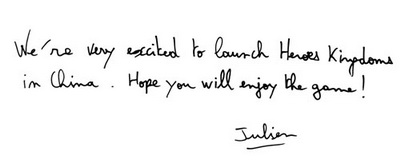 We're very excited to launch Heroes Kingdoms
in China. Hope you will enjoy the game!
Julien